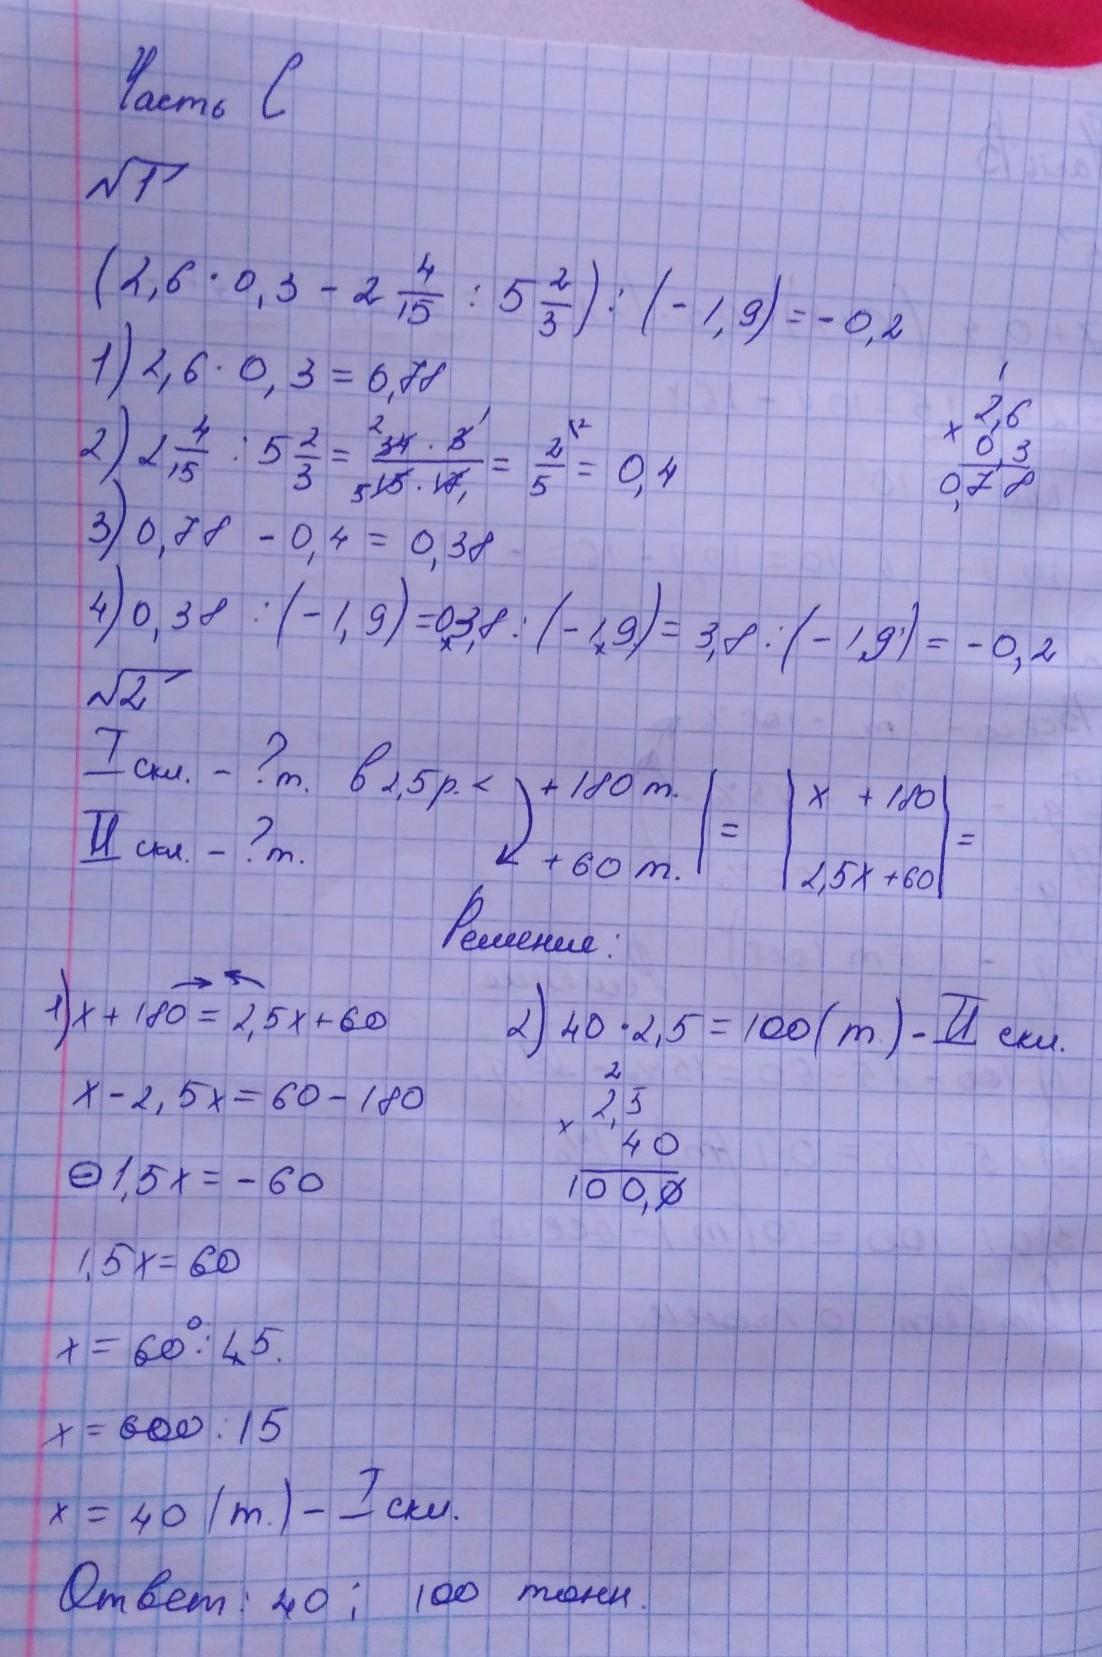 Часть С
№1
(2,6 · 0,3 - 2 4/15 : 5 2/3) : (-1,9) = -0,2
1) 2,6 · 0,3 = 0,78
2,6
× 0,3
0,78
2) 2 4/15 : 5 2/3 = 34 · 3 / 15 · 17 = 2/5 = 0,4
3) 0,78 - 0,4 = 0,38
4) 0,38 : (-1,9) = 0,3,8 : (-1,9) = 3,8 : (-19) = -0,2
№2
I скл. - ? т. в 2,5 р. < + 180 т. | = | x + 180 | =
II скл. - ? т. + 60 т. 2,5x + 60
Решение:
1) x + 180 = 2,5x + 60
x - 2,5x = 60 - 180
-1,5x = -60
1,5x = 60
x = 60 : 1,5.
x = 600 : 15
x = 40 (т.) - I скл.
2) 40 · 2,5 = 100 (т.) - II скл.
2
2,5
× 40
100,0
Ответ: 40; 100 тонн.